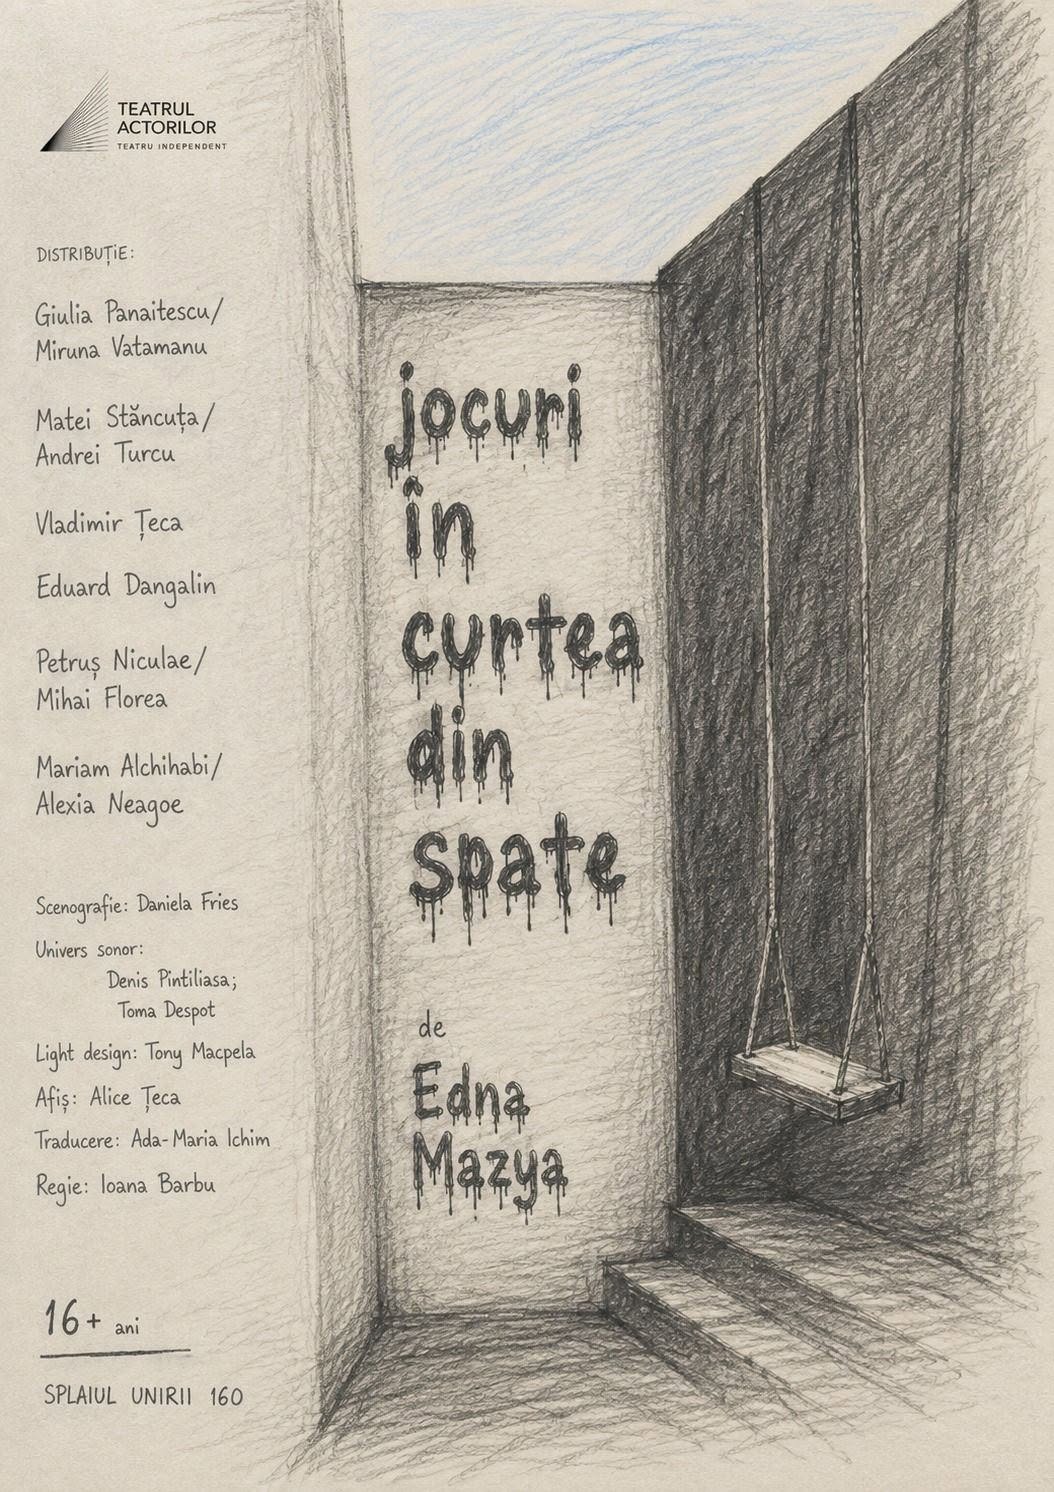 TEATRUL
ACTORILOR
TEATRU INDEPENDENT
DISTRIBUȚiE:
Giulia Panaitescu/
Miruna Vatamanu
Matei Stăncuța/
Andrei Turcu
Vladimir Țeca
Eduard Dangalin
Petruș Niculae/
Mihai Florea
Mariam Alchihabi/
Alexia Neagoe
Scenografie: Daniela Fries
Univers sonor:
Denis Pintiliasa;
Toma Despot
Light design: Tony Macpela
Afiș: Alice Țeca
Traducere: Ada-Maria Ichim
Regie: Ioana Barbu
16+ ani
SPLAIUL UNIRII 160
jocuri
în
curtea
din
spate
de
Edna
Mazya